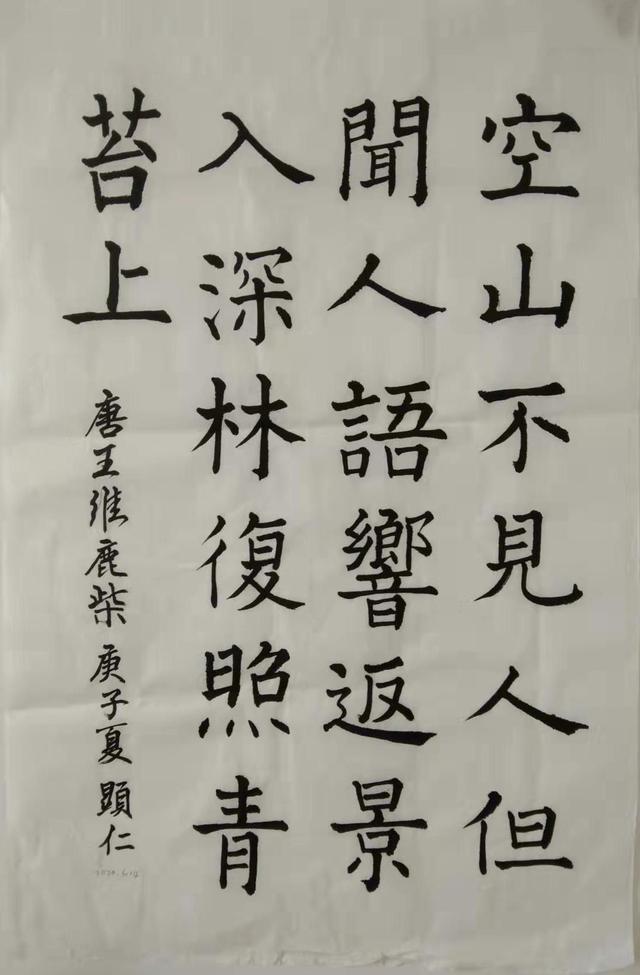 空山不見人但
聞人語響返景
入深林復照青
苔上
唐王維鹿柴庚子夏顕仁
2020.6.12